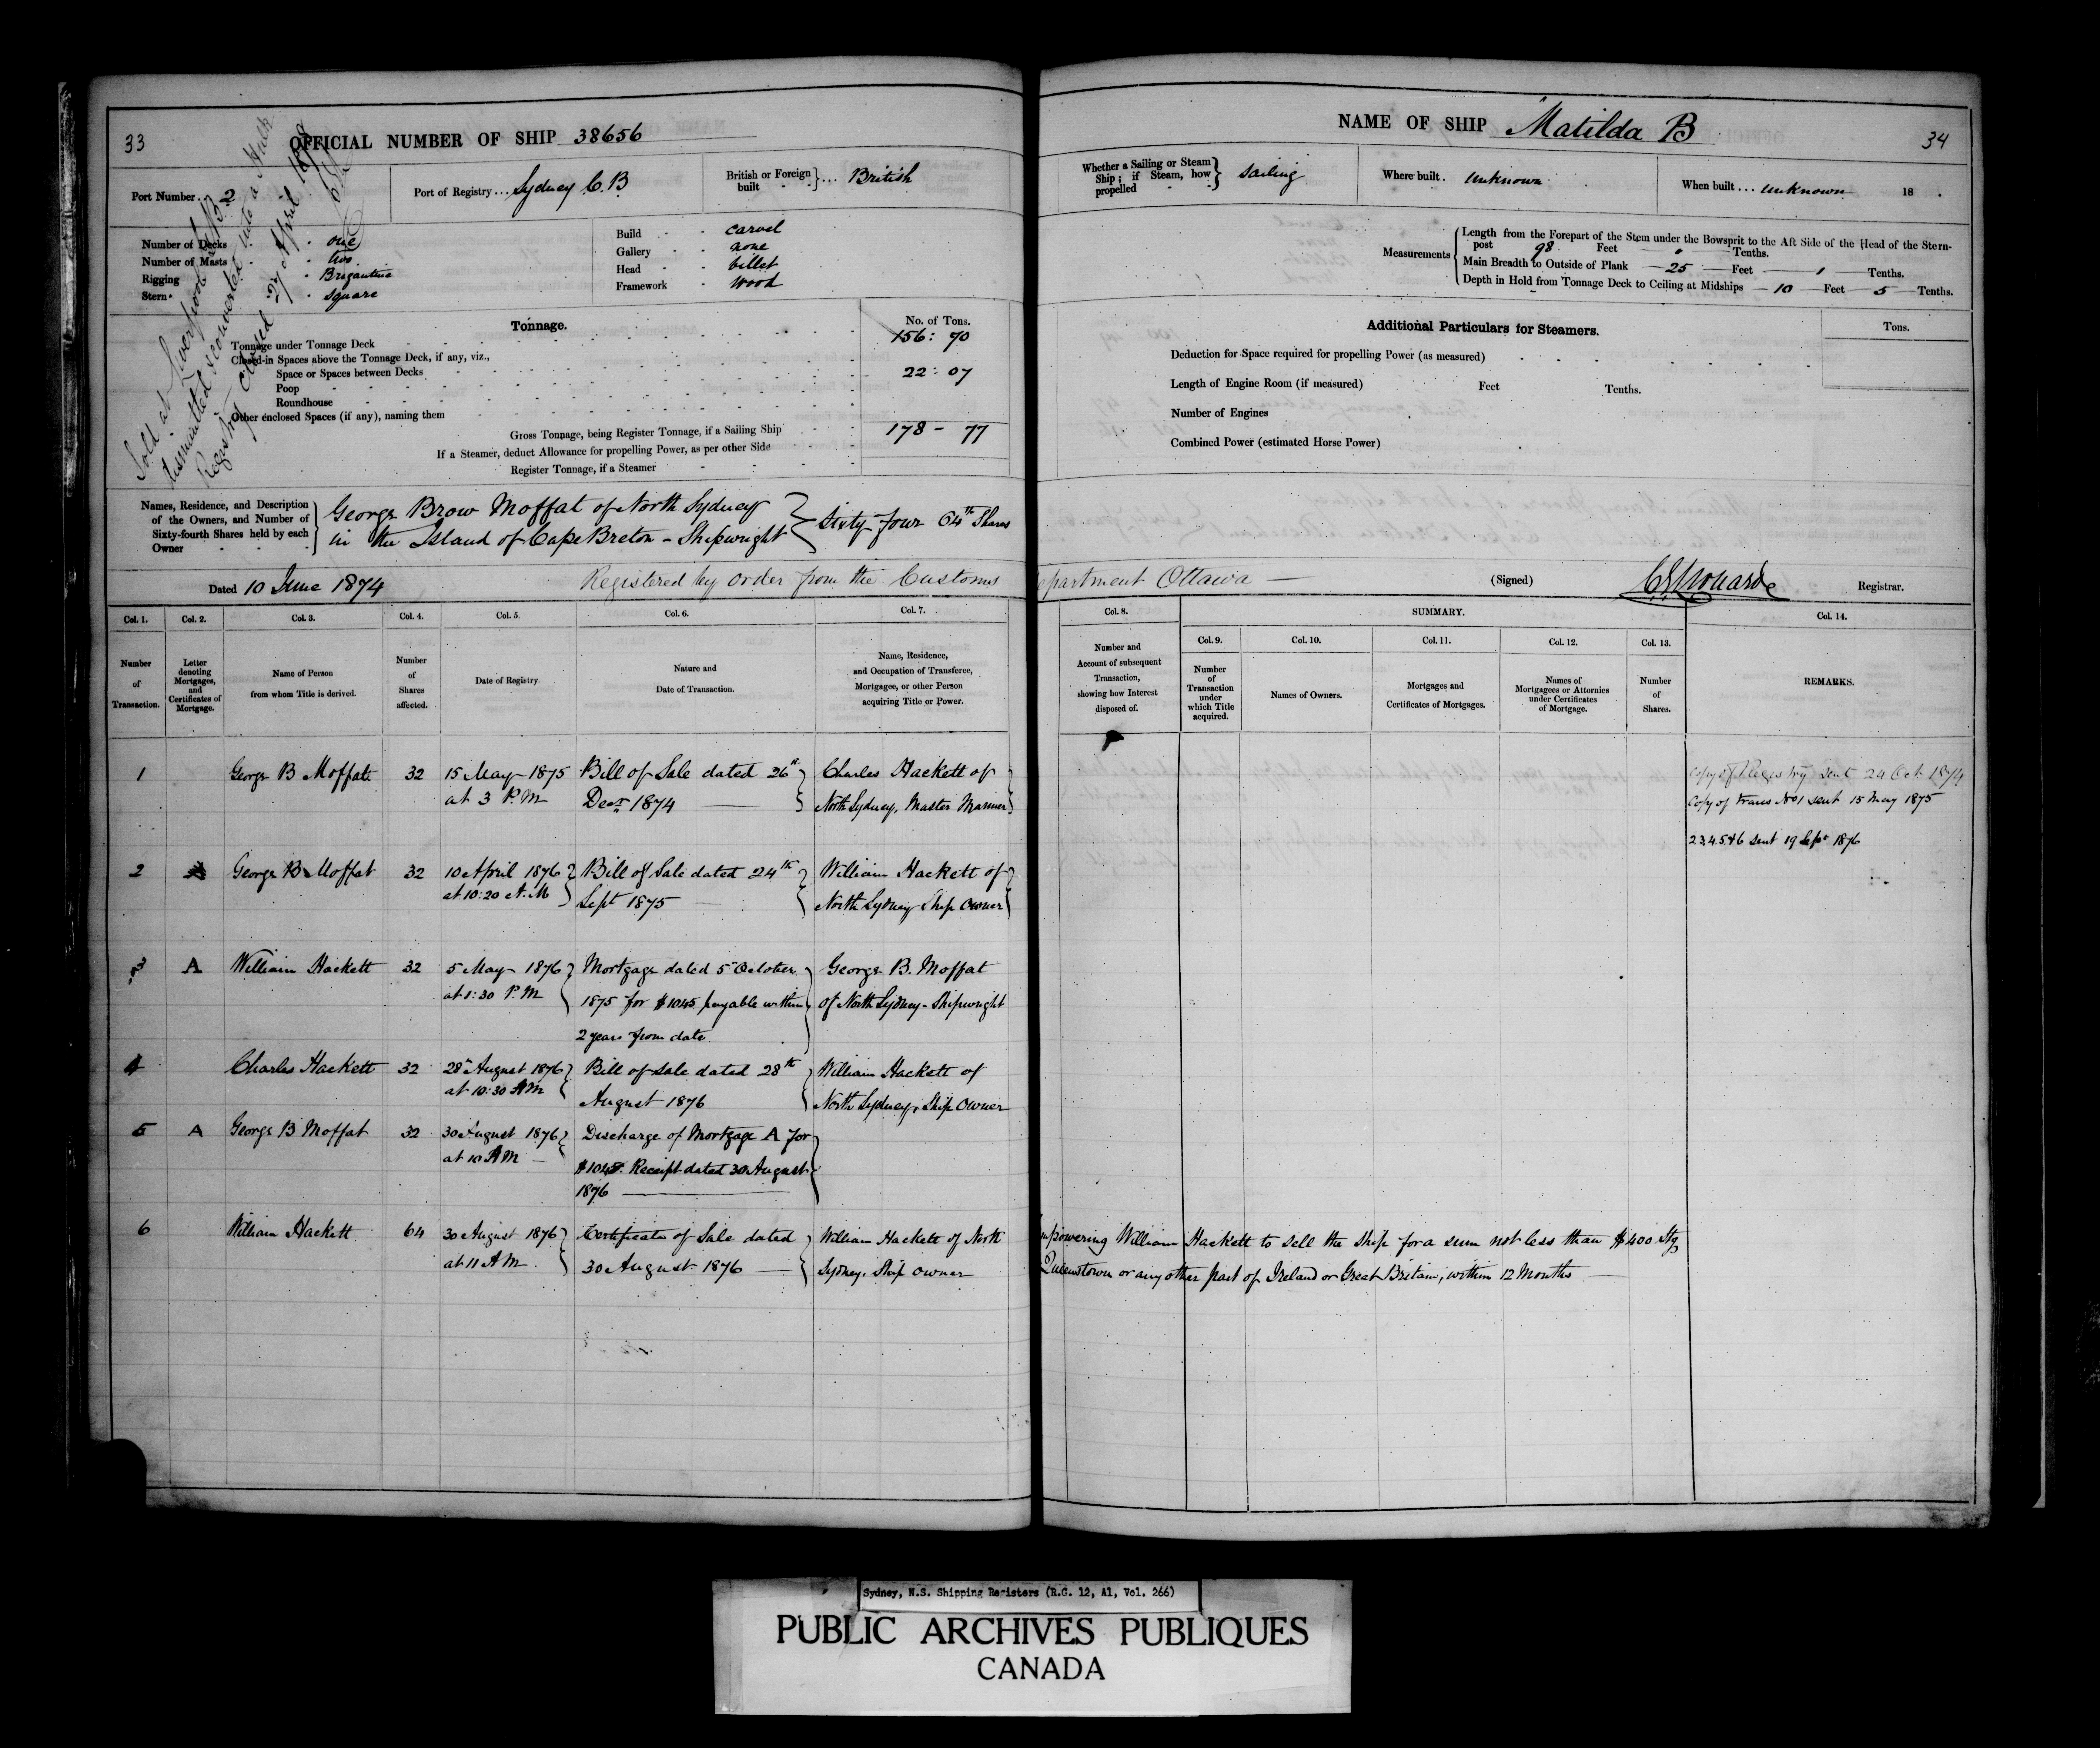 33
OFFICIAL NUMBER OF SHIP 38656
Port Number . . 2
Port of Registry . . . Sydney C. B
British or Foreign built } . . . British
Number of Decks - one
Number of Masts - two
Rigging - Brigantine
Stern - square
Build - carvel
Gallery - none
Head - billet
Framework - wood
Sold at Liverpool
dismantled & converted into a Hulk
Registry closed 27 April
Tonnage.
No. of Tons.
Tonnage under Tonnage Deck 156 : 70
Closed-in Spaces above the Tonnage Deck, if any, viz.,
Space or Spaces between Decks 22 : 07
Poop
Roundhouse
Other enclosed Spaces (if any), naming them
Gross Tonnage, being Register Tonnage, if a Sailing Ship 178 - 77
If a Steamer, deduct Allowance for propelling Power, as per other Side
Register Tonnage, if a Steamer
Names, Residence, and Description of the Owners, and Number of Sixty-fourth Shares held by each Owner
George Brow Moffat of North Sydney
in the Island of Cape Breton - Shipwright } Sixty four 64th Shares
Dated 10 June 1874
Registered by order from the Customs
Col. 1. Col. 2. Col. 3. Col. 4. Col. 5. Col. 6. Col. 7.
Number of Transaction.
Letter denoting Mortgages, and Certificates of Mortgage.
Name of Person from whom Title is derived.
Number of Shares affected.
Date of Registry.
Nature and Date of Transaction.
Name, Residence, and Occupation of Transferee, Mortgagee, or other Person acquiring Title or Power.
1 George B Moffat 32 15 May 1875 Bill of Sale dated 26th Charles Hackett of
at 3 P.M Decr 1874 North Sydney, Master Mariner
2 George B Moffat 32 10 April 1876 Bill of Sale dated 24th William Hackett of
at 10:20 A.M Sept 1875 North Sydney Ship Owner
3 A William Hackett 32 5 May 1876 Mortgage dated 5 October George B. Moffat
at 1:30 P.M 1875 for $1045 payable within of North Sydney - Shipwright
2 years from date.
4 Charles Hackett 32 28 August 1876 Bill of Sale dated 28th William Hackett of
at 10:30 AM August 1876 North Sydney, Ship Owner
5 A George B Moffat 32 30 August 1876 Discharge of Mortgage A for
at 10 AM $1045. Receipt dated 30 August
1876
6 William Hackett 64 30 August 1876 Certificate of Sale dated William Hackett of North
at 11 AM 30 August 1876 Sydney, Ship owner
NAME OF SHIP Matilda B
34
Whether a Sailing or Steam Ship ; if Steam, how propelled } Sailing
Where built . Unknown
When built . . . unknown 18 .
Measurements
Length from the Forepart of the Stem under the Bowsprit to the Aft Side of the Head of the Stern-
post 98 Feet 0 Tenths.
Main Breadth to Outside of Plank 25 Feet 1 Tenths.
Depth in Hold from Tonnage Deck to Ceiling at Midships 10 Feet 5 Tenths.
Additional Particulars for Steamers.
Tons.
Deduction for Space required for propelling Power (as measured)
Length of Engine Room (if measured) Feet Tenths.
Number of Engines
Combined Power (estimated Horse Power)
epartment Ottawa
(Signed) Registrar.
Col. 8.
SUMMARY.
Col. 9. Col. 10. Col. 11. Col. 12. Col. 13. Col. 14.
Number and Account of subsequent Transaction, showing how Interest disposed of.
Number of Transaction under which Title acquired.
Names of Owners.
Mortgages and Certificates of Mortgages.
Names of Mortgagees or Attornies under Certificates of Mortgage.
Number of Shares.
REMARKS.
Copy of Registry sent 24 Oct 1874
Copy of trans No 1 sent 15 May 1875
2 3, 4, 5 & 6 sent 19 Sepr 1876
mpowering William Hackett to sell the Ship for a sum not less than $400 Stg
Queenstown or any other part of Ireland or Great Britain, within 12 Months
Sydney, N.S. Shipping Registers (R.G. 12, A1, Vol. 266)
PUBLIC ARCHIVES PUBLIQUES
CANADA